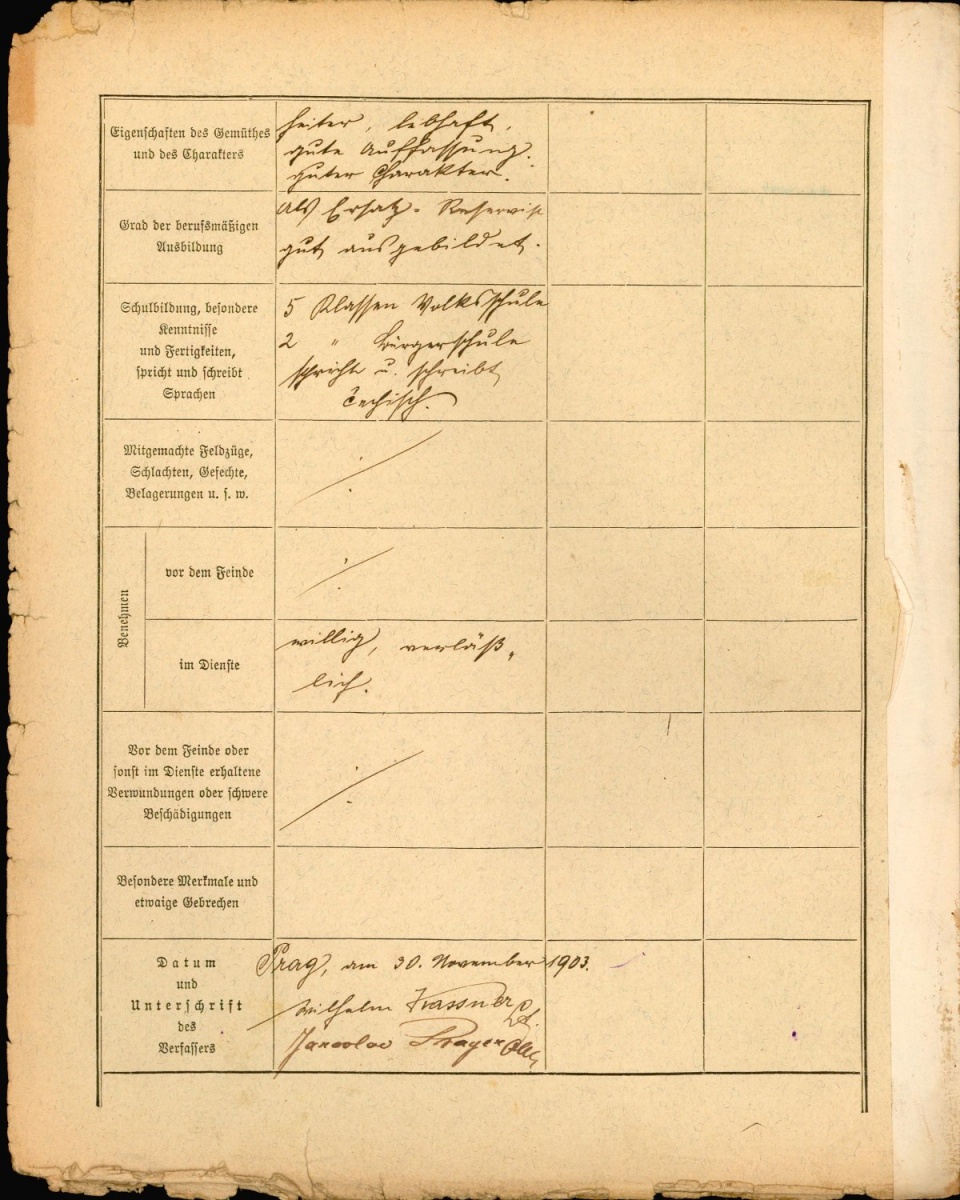 Eigenschaften des Gemüthes
und des Charakters
heiter, lebhaft,
gute Auffassung.
guter Charakter.
Grad der berufsmäßigen
Ausbildung
Als Ersatz-Reservist
gut ausgebildet.
Schulbildung, besondere
Kenntnisse
und Fertigkeiten,
spricht und schreibt
Sprachen
5 Klassen Volksschule
2 " Bürgerschule
spricht u. schreibt
čechisch.
Mitgemachte Feldzüge,
Schlachten, Gefechte,
Belagerungen u. s. w.
Benehmen
vor dem Feinde
im Dienste
willig, verläß„
lich.
Vor dem Feinde oder
sonst im Dienste erhaltene
Verwundungen oder schwere
Beschädigungen
Besondere Merkmale und
etwaige Gebrechen
Datum
und
Unterschrift
des
Verfassers
Prag, am 30. November 1903.
Wilhelm Krassner
Jaroslav Prager